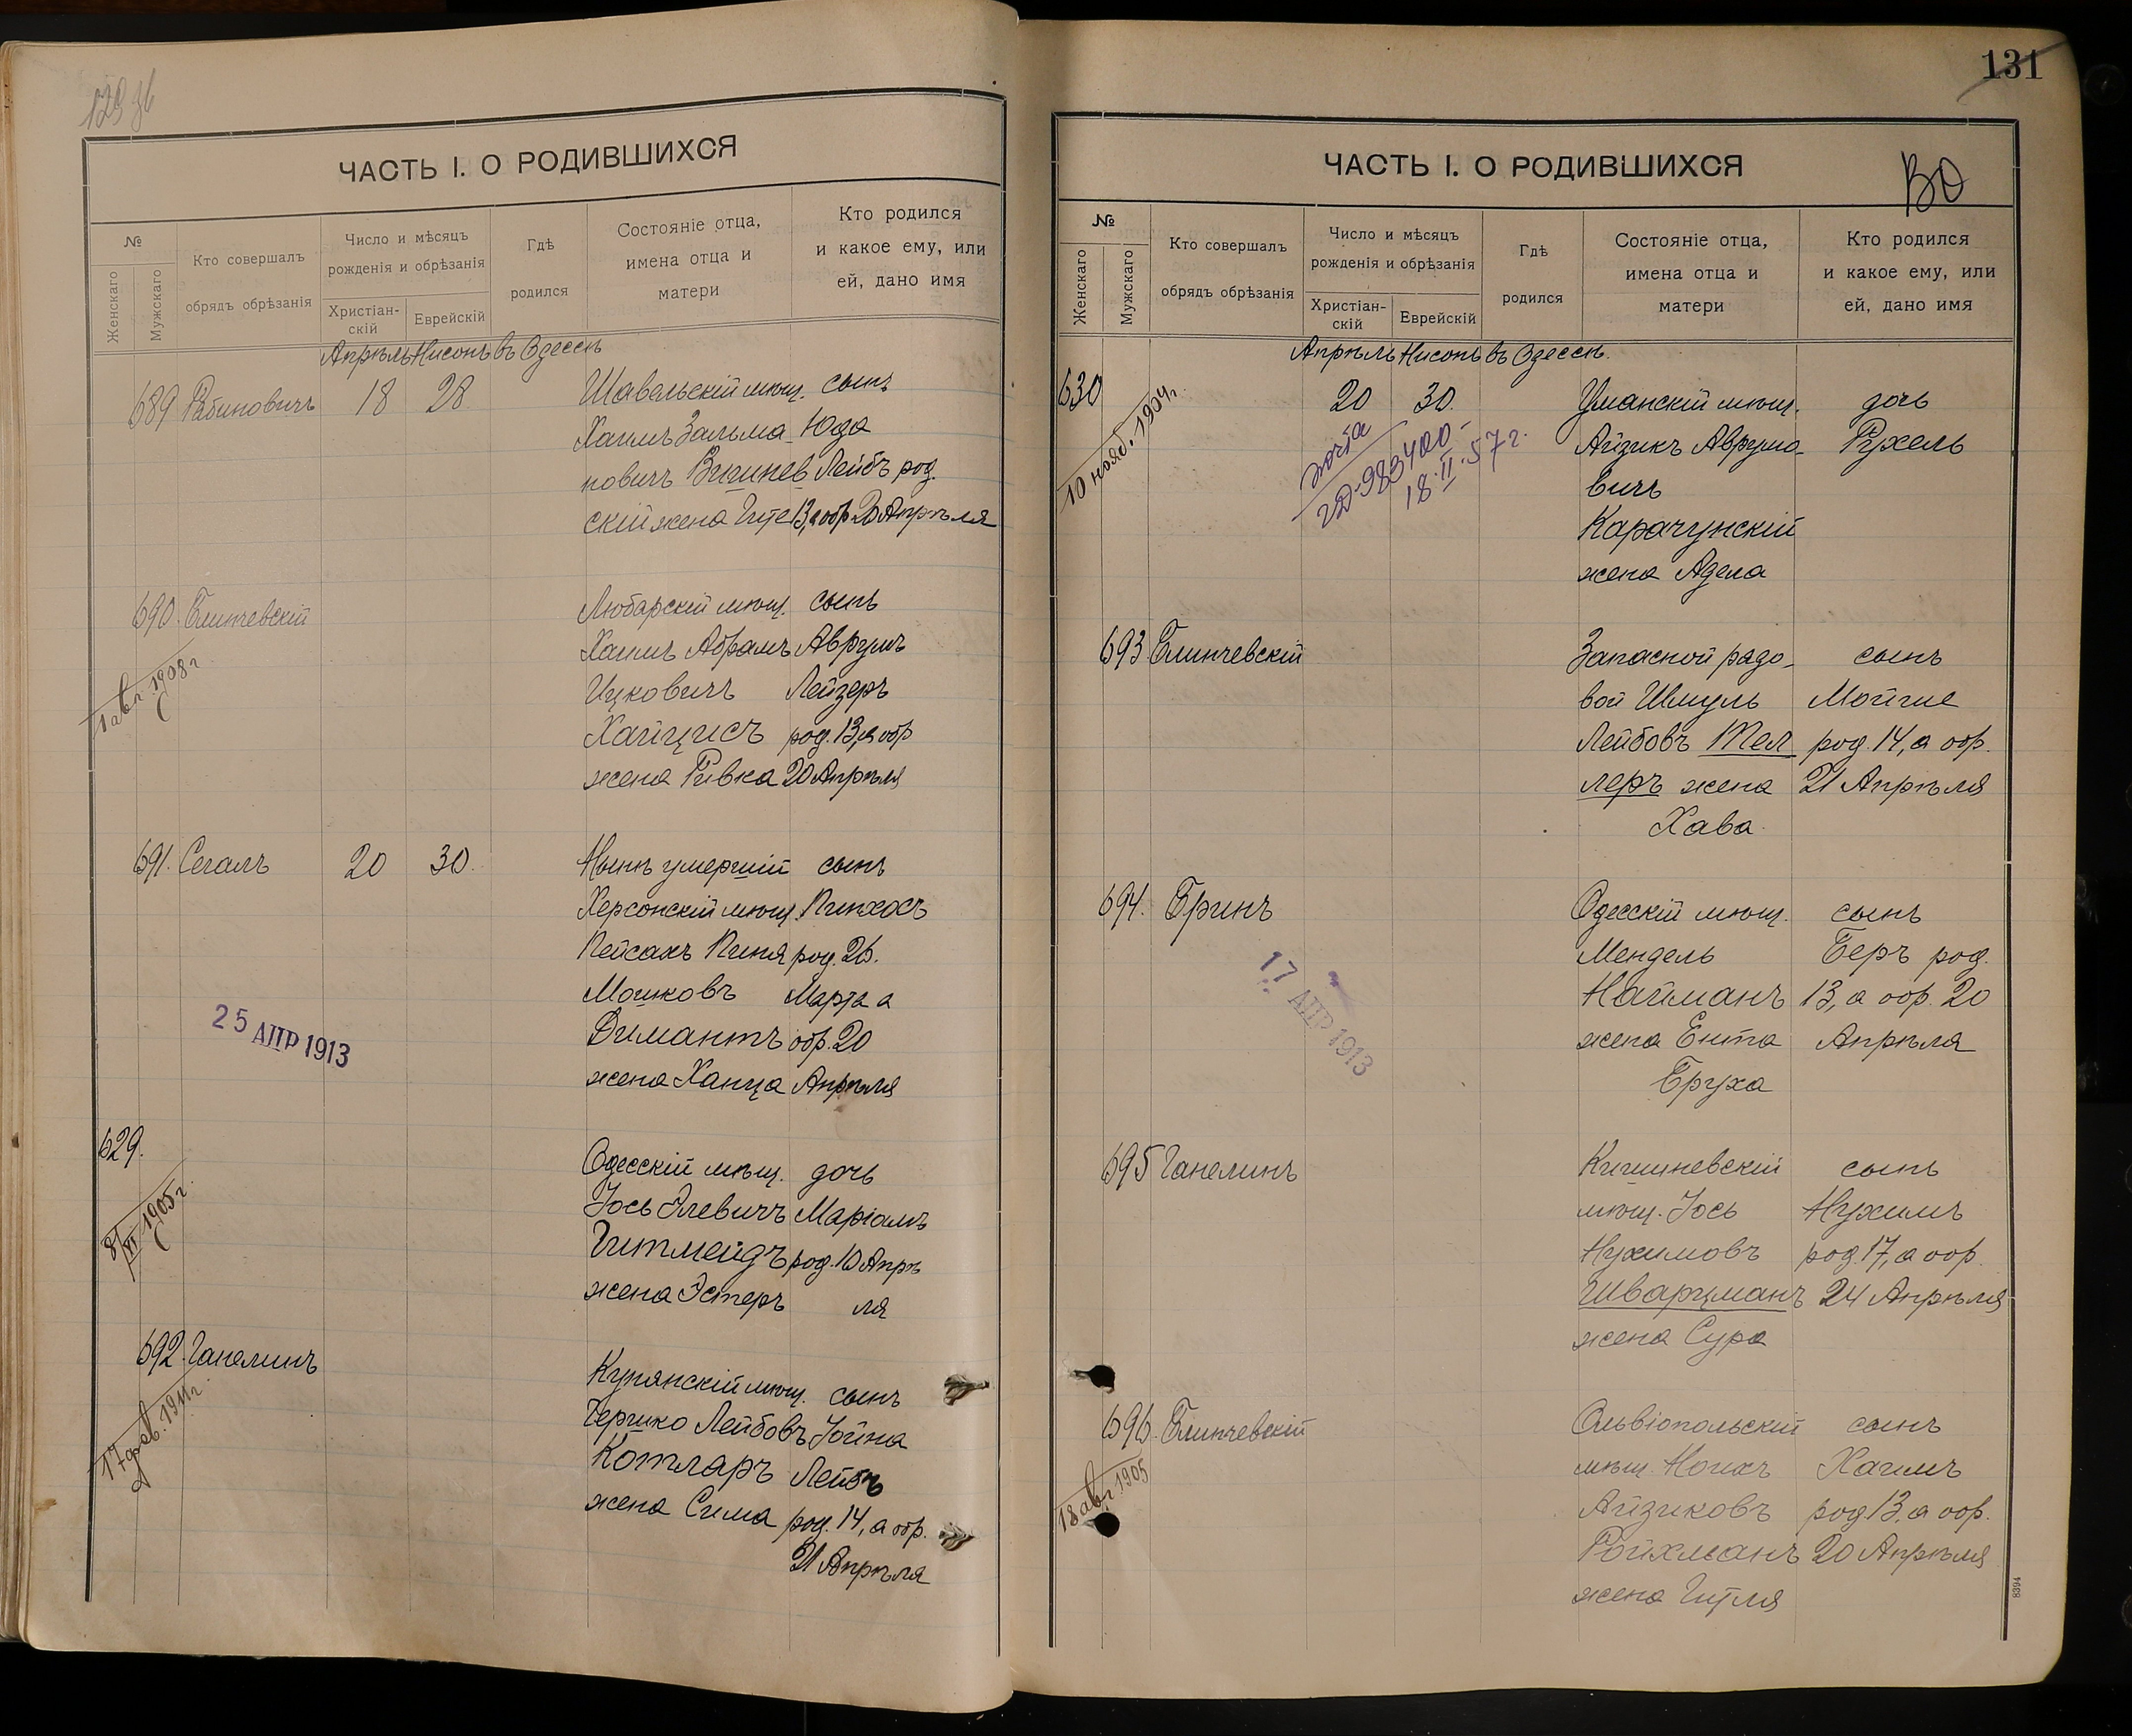 ЧАСТЬ I. О РОДИВШИХСЯ
№
Женскаго
Мужскаго
Кто совершалъ
обрядъ обрѣзанія
Число и мѣсяцъ
рожденія и обрѣзанія
Христіан-
скій
Еврейскій
Гдѣ
родился
Состояніе отца,
имена отца и
матери
Кто родился
и какое ему, или
ей, дано имя
Апрѣль Нисонъ въ Одессѣ
689 Рабиновичъ 18 28 Шавельскій мѣщ. сынъ
Хаимъ Зальма- Юда
новичъ Вишнев Лейбъ род.
скій жена Гитя 13, а обр. 20 Апрѣля
690. Блинчевскій Любарскій мѣщ. сынъ
Хаимъ Абрамъ Аврумъ
Ицковичъ Лейзеръ
Хайцисъ род. 13, а обр
жена Ривка 20 Апрѣля
1 авг. 1908 г
691. Сегалъ 20 30. Нынѣ умершій сынъ
Херсонскій мѣщ. Пинхосъ
Пейсахъ Пиня род. 26.
Мошковъ Марта а
Димантъ обр. 20
жена Ханца Апрѣля
25 АПР 1913
629. Одесскій мѣщ. дочь
Іось Элевичъ Маріамъ
Гитмейдъ род. 10 Апрѣ
жена Эстеръ ля
8/VI 1905 г.
692. Ганелинъ Купянскій мѣщ. сынъ
Гершко Лейбовъ Іойна
Котляръ Лейбъ
жена Сима род. 14, а обр.
21 Апрѣля
17 фев. 1911 г.
131
ЧАСТЬ I. О РОДИВШИХСЯ
ВО
№
Женскаго
Мужскаго
Кто совершалъ
обрядъ обрѣзанія
Число и мѣсяцъ
рожденія и обрѣзанія
Христіан-
скій
Еврейскій
Гдѣ
родился
Состояніе отца,
имена отца и
матери
Кто родился
и какое ему, или
ей, дано имя
Апрѣль Нисонъ въ Одессѣ.
630 20 30. Уманскій мѣщ. дочь
Айзикъ Аврумо- Рухель
вичъ
Карачунскій
жена Адела
10 нояб. 1904 г.
983400
18.II.57 г.
693 Блинчевскій Запасной рядо- сынъ
вой Шмуль Мойше
Лейбовъ Тел- род. 14, а обр.
леръ жена 21 Апрѣля
Хава.
694. Бринъ Одесскій мѣщ. сынъ
Мендель Беръ род.
Найманъ 13, а обр. 20
жена Ента Апрѣля
Бруха
17 АПР 1913
695 Ганелинъ Кишиневскій сынъ
мѣщ. Іось Нухимъ
Нухимовъ род. 17, а обр.
Шварцманъ 24 Апрѣля
жена Сура
696. Блинчевскій Ольвіопольскій сынъ
мѣщ. Ноихъ Хаимъ
Айзиковъ род. 13, а обр.
Ройхманъ 20 Апрѣля
жена Гитля
18 авг. 1905
8394